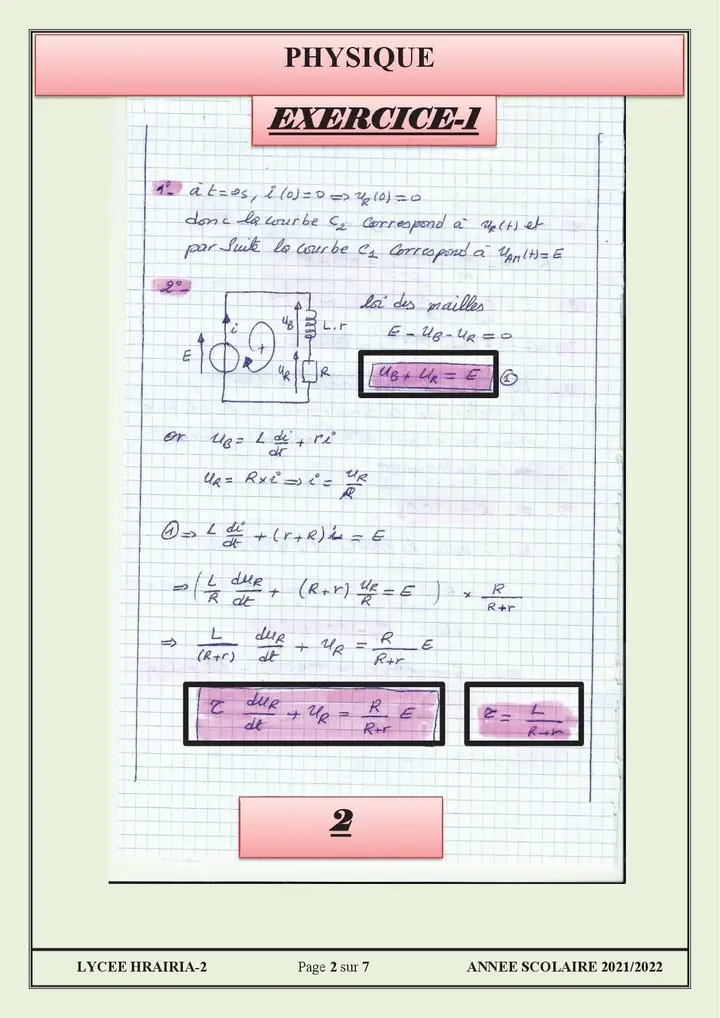 PHYSIQUE
EXERCICE-1
1°- à t=0s, i(0)=0 => u_R(0)=0
donc la courbe C₂ correspond à u_R(t) et
par suite la courbe C₁ correspond à u_AM(t)=E
2°-
loi des mailles
E - u_B - u_R = 0
u_B + u_R = E ①
E i + u_B L.r u_R R
or u_B = L di/dt + ri
u_R = R×i => i = u_R/R
① => L di/dt + (r+R)i = E
=> ( L/R du_R/dt + (R+r) u_R/R = E ) × R/(R+r)
=> L/(R+r) du_R/dt + u_R = R/(R+r) E
τ du_R/dt + u_R = R/(R+r) E
τ = L/(R+r)
2
LYCEE HRAIRIA-2 Page 2 sur 7 ANNEE SCOLAIRE 2021/2022